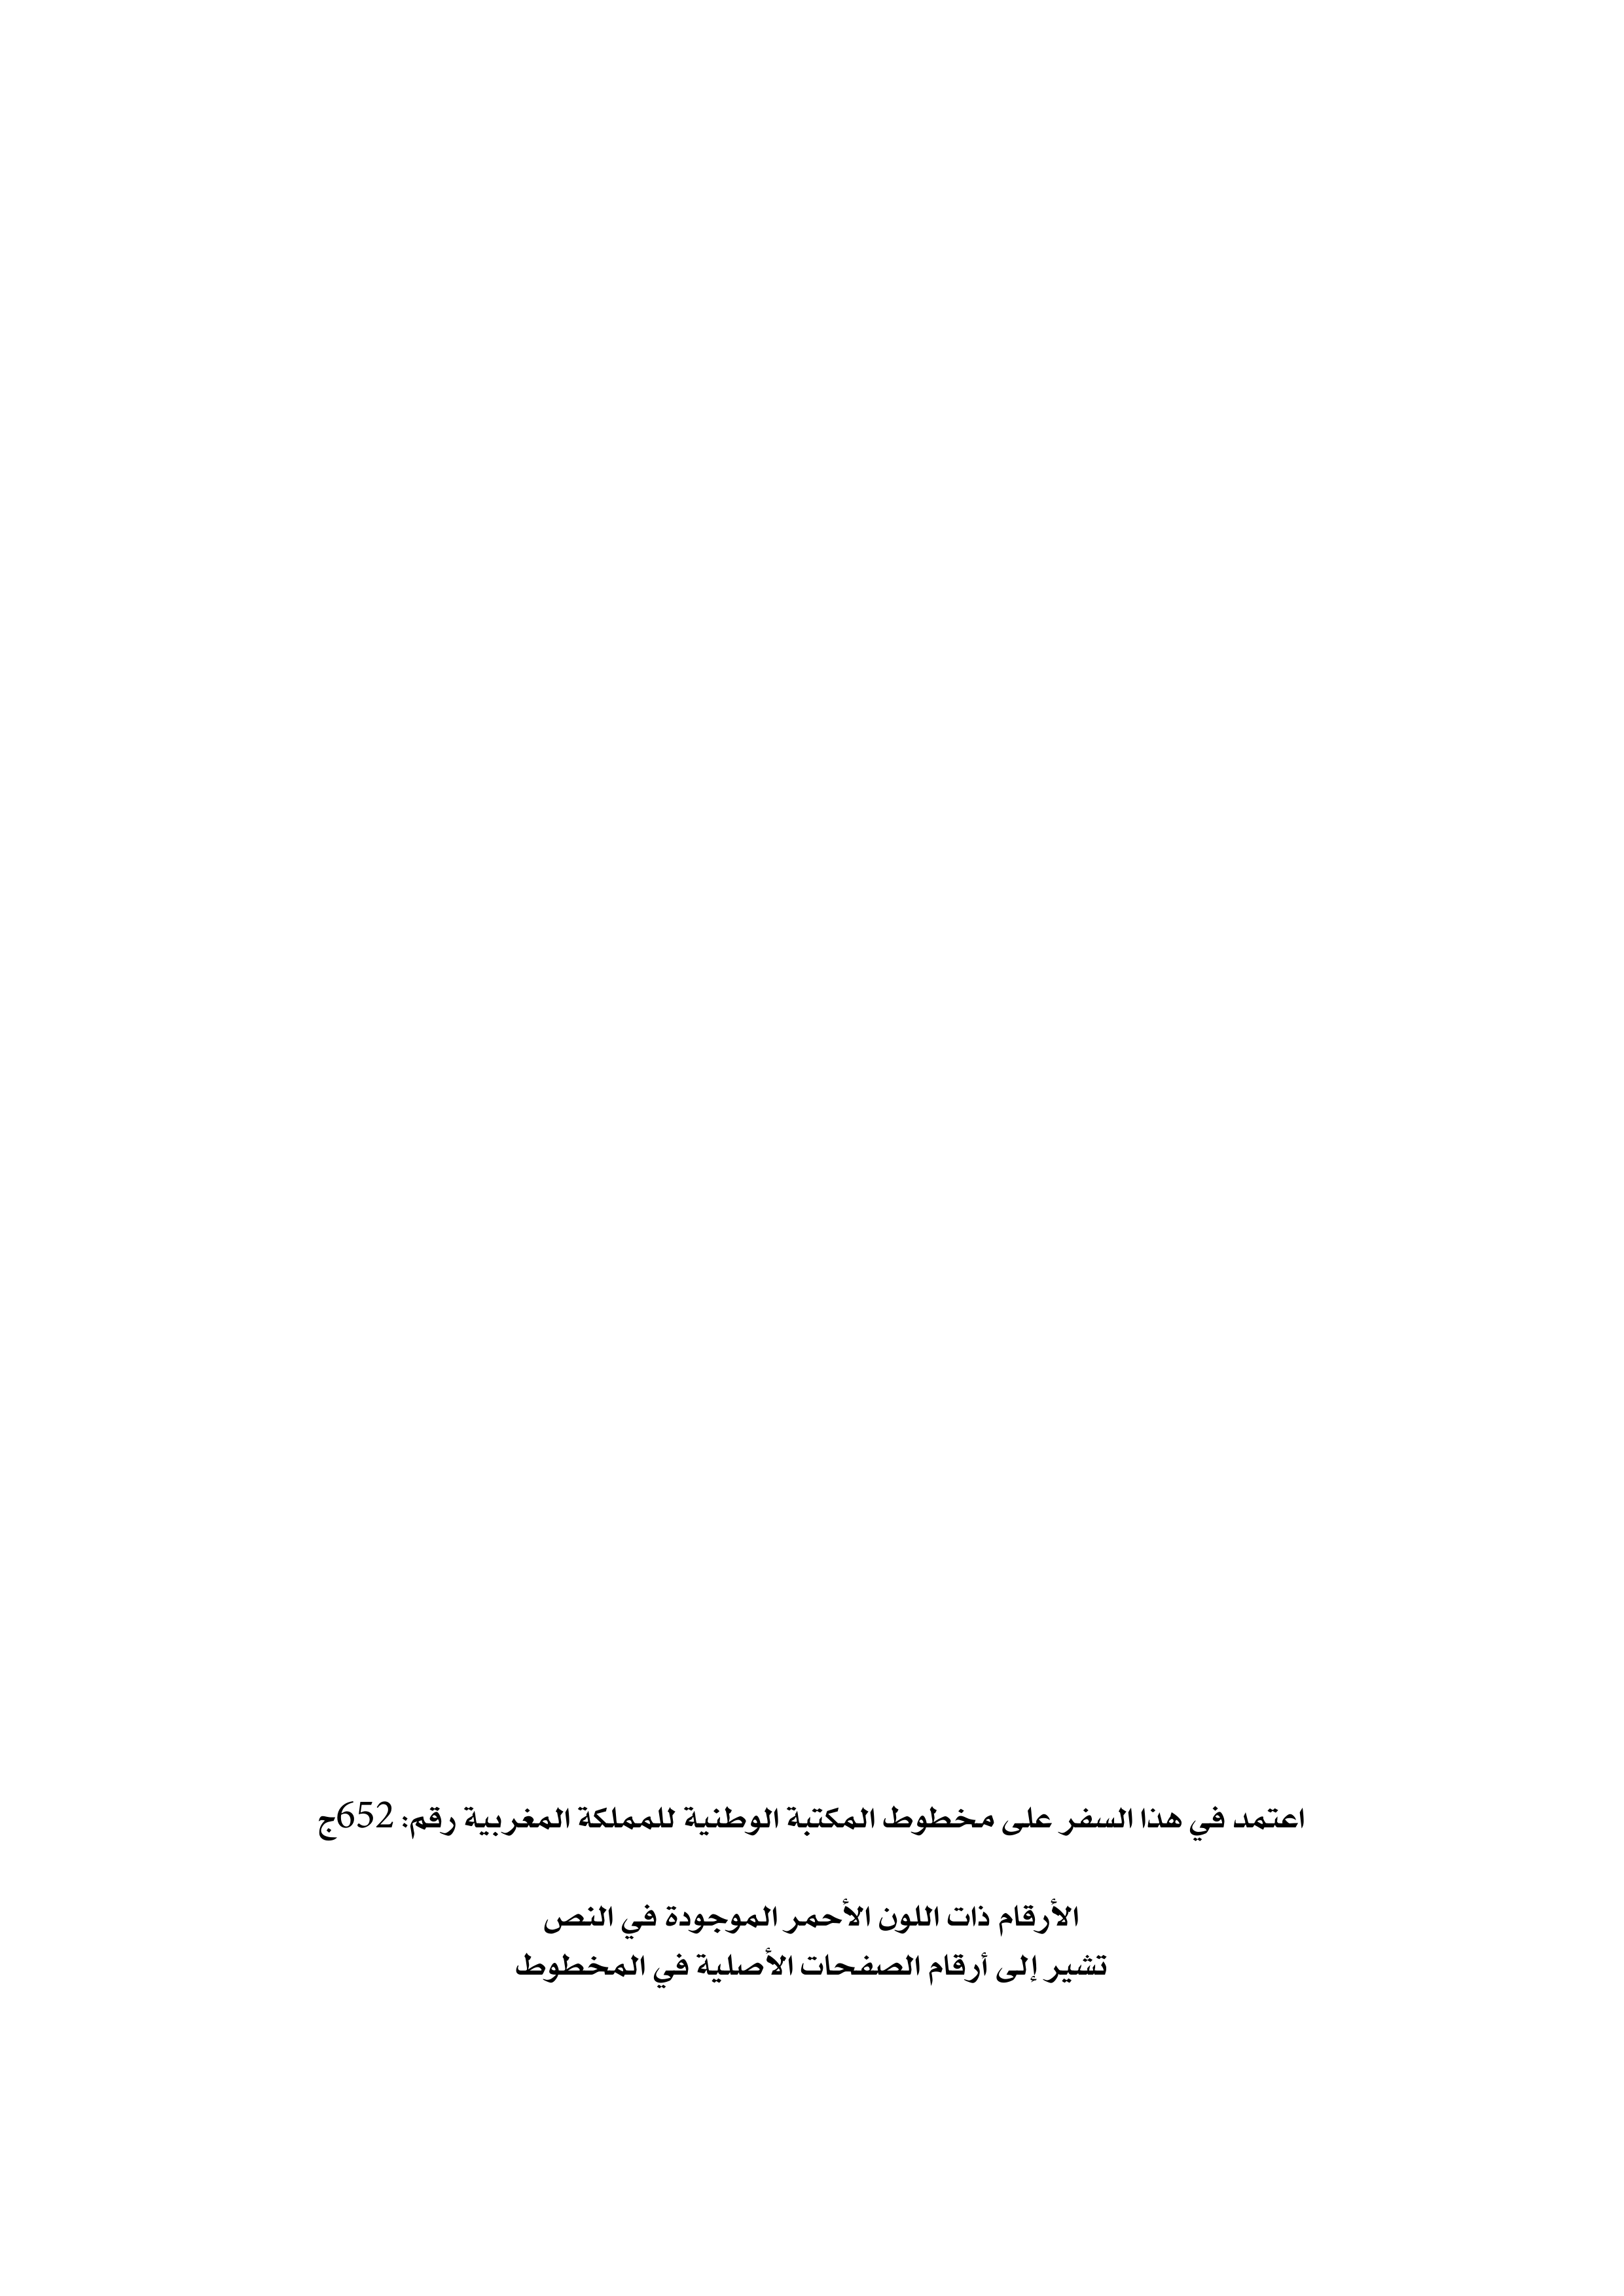 اعتمد في هذا السفر على مخطوط المكتبة الوطنية للمملكة المغربية رقم: 652ج
الأرقام ذات اللون الأحمر الموجودة في النص
تشير إلى أرقام الصفحات الأصلية في المخطوط